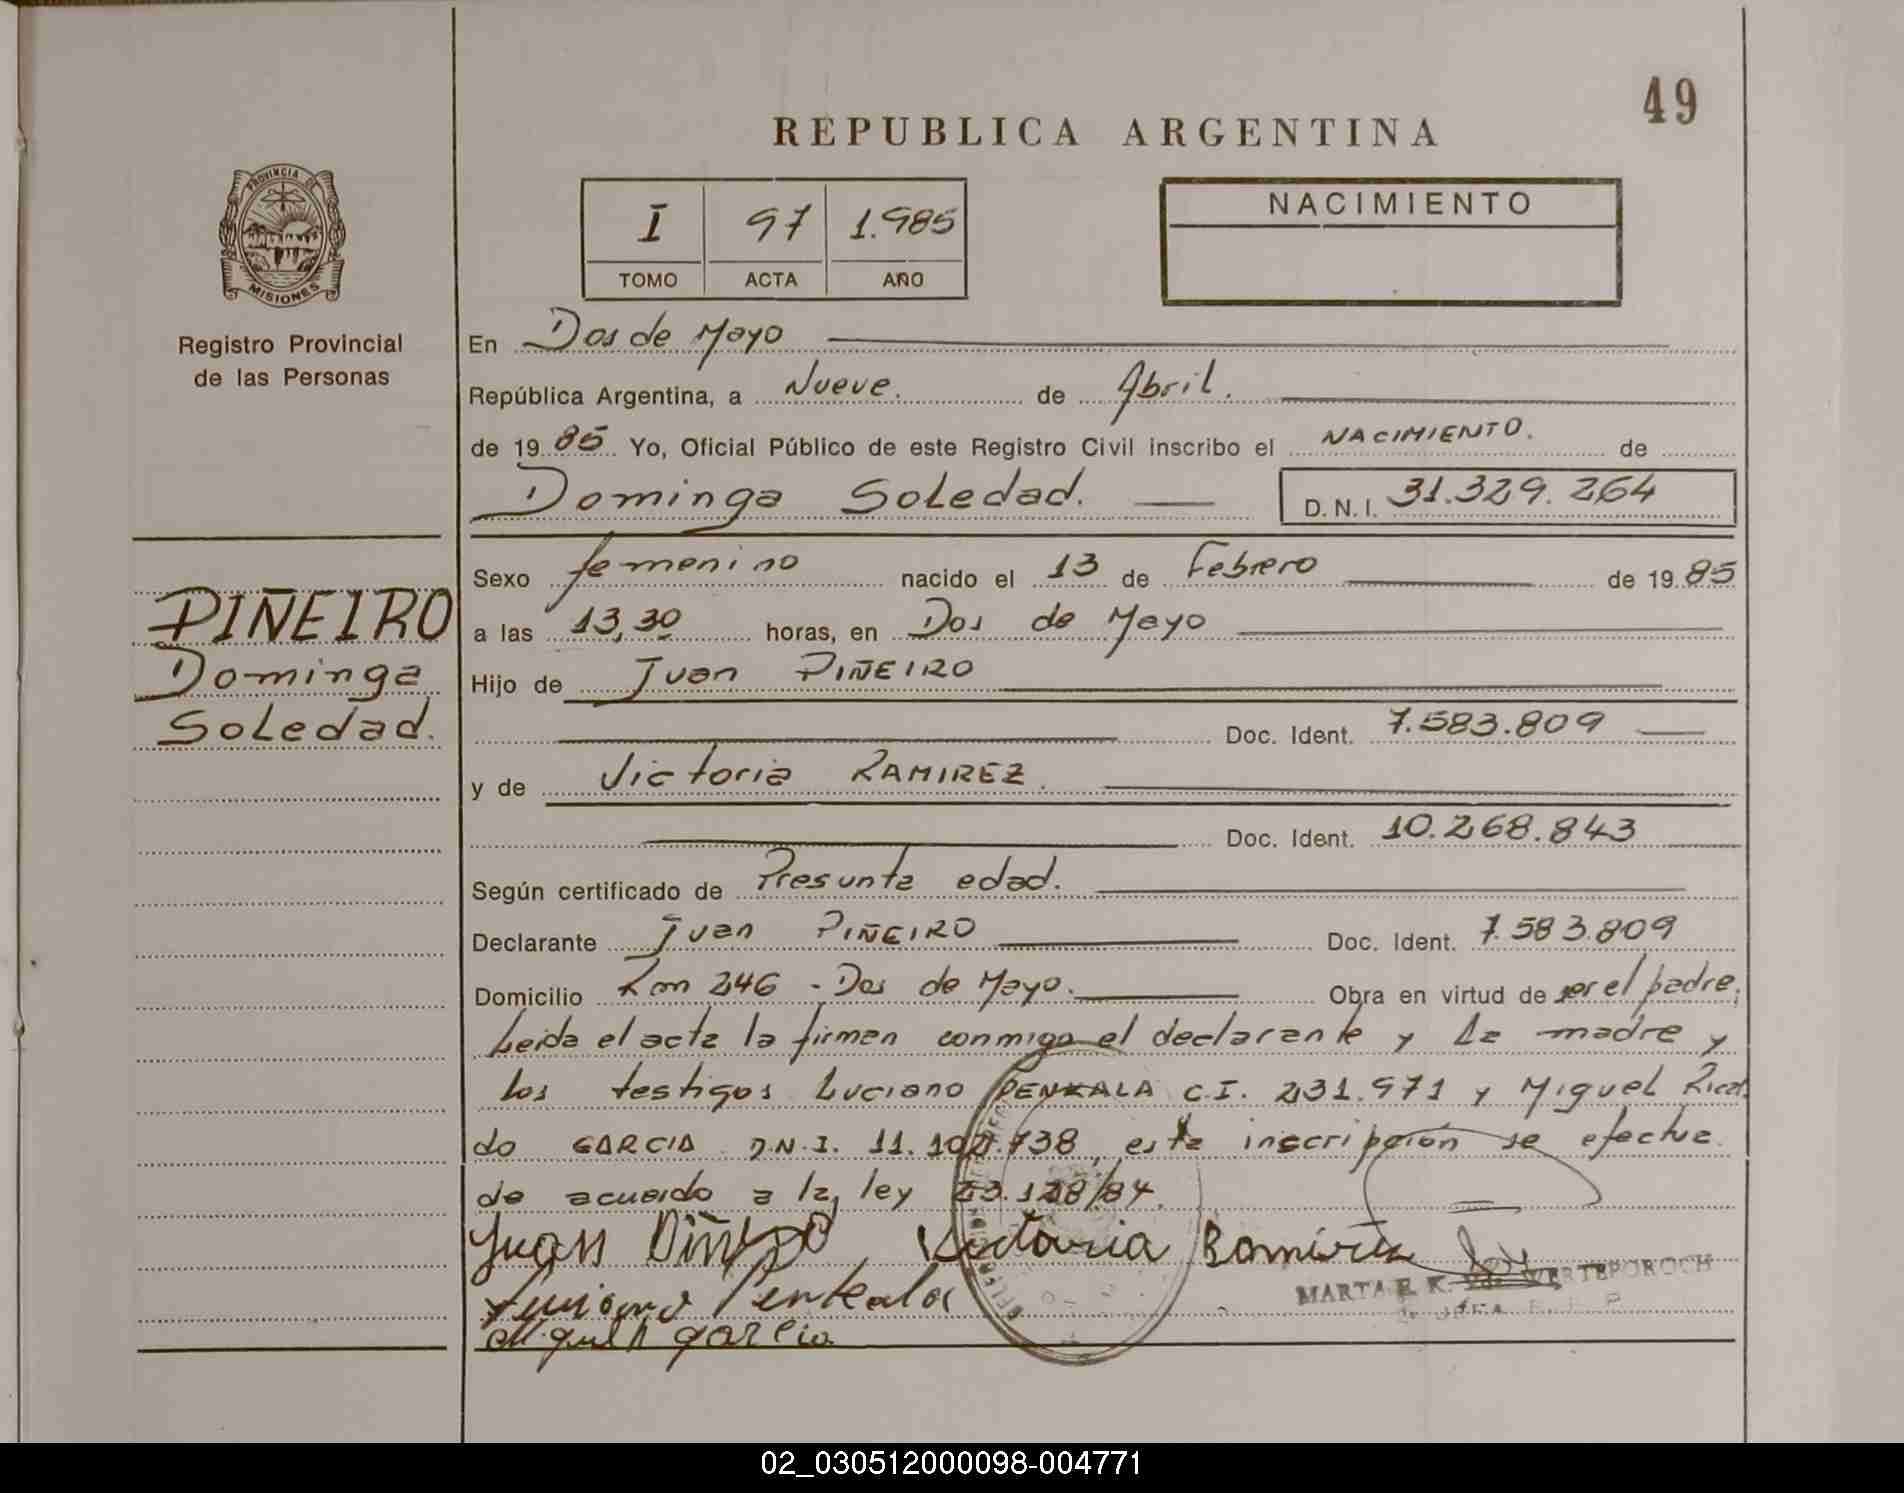 49
REPUBLICA ARGENTINA
PROVINCIA DE
MISIONES
Registro Provincial
de las Personas
I 97 1.985
TOMO ACTA AÑO
NACIMIENTO
En Dos de Mayo
República Argentina, a Nueve. de Abril.
de 19 85 Yo, Oficial Público de este Registro Civil inscribo el NACIMIENTO. de
Dominga Soledad. D. N. I. 31.329.264
PIÑEIRO
Dominga
Soledad.
Sexo femenino nacido el 13 de Febrero de 19 85
a las 13,30 horas, en Dos de Mayo
Hijo de Juan PIÑEIRO
Doc. Ident. 7.583.809
y de Victoria RAMIREZ.
Doc. Ident. 10.268.843
Según certificado de Presunta edad.
Declarante Juan PIÑEIRO Doc. Ident. 7.583.809
Domicilio Km 246 - Dos de Mayo. Obra en virtud de ser el padre,
Leida el acta la firman conmigo el declarante y la madre y
los testigos Luciano PENKALA C.I. 231.971 y Miguel Ricar
do GARCIA D.N.I. 11. .738, esta inscripción se efectua
de acuerdo a la ley 23.128/84.
Juan Piñeiro Victoria Ramirez
Luciano Penkala
Miguel R garcia
MARTA E. K. WERTEPOROCH
02_030512000098-004771